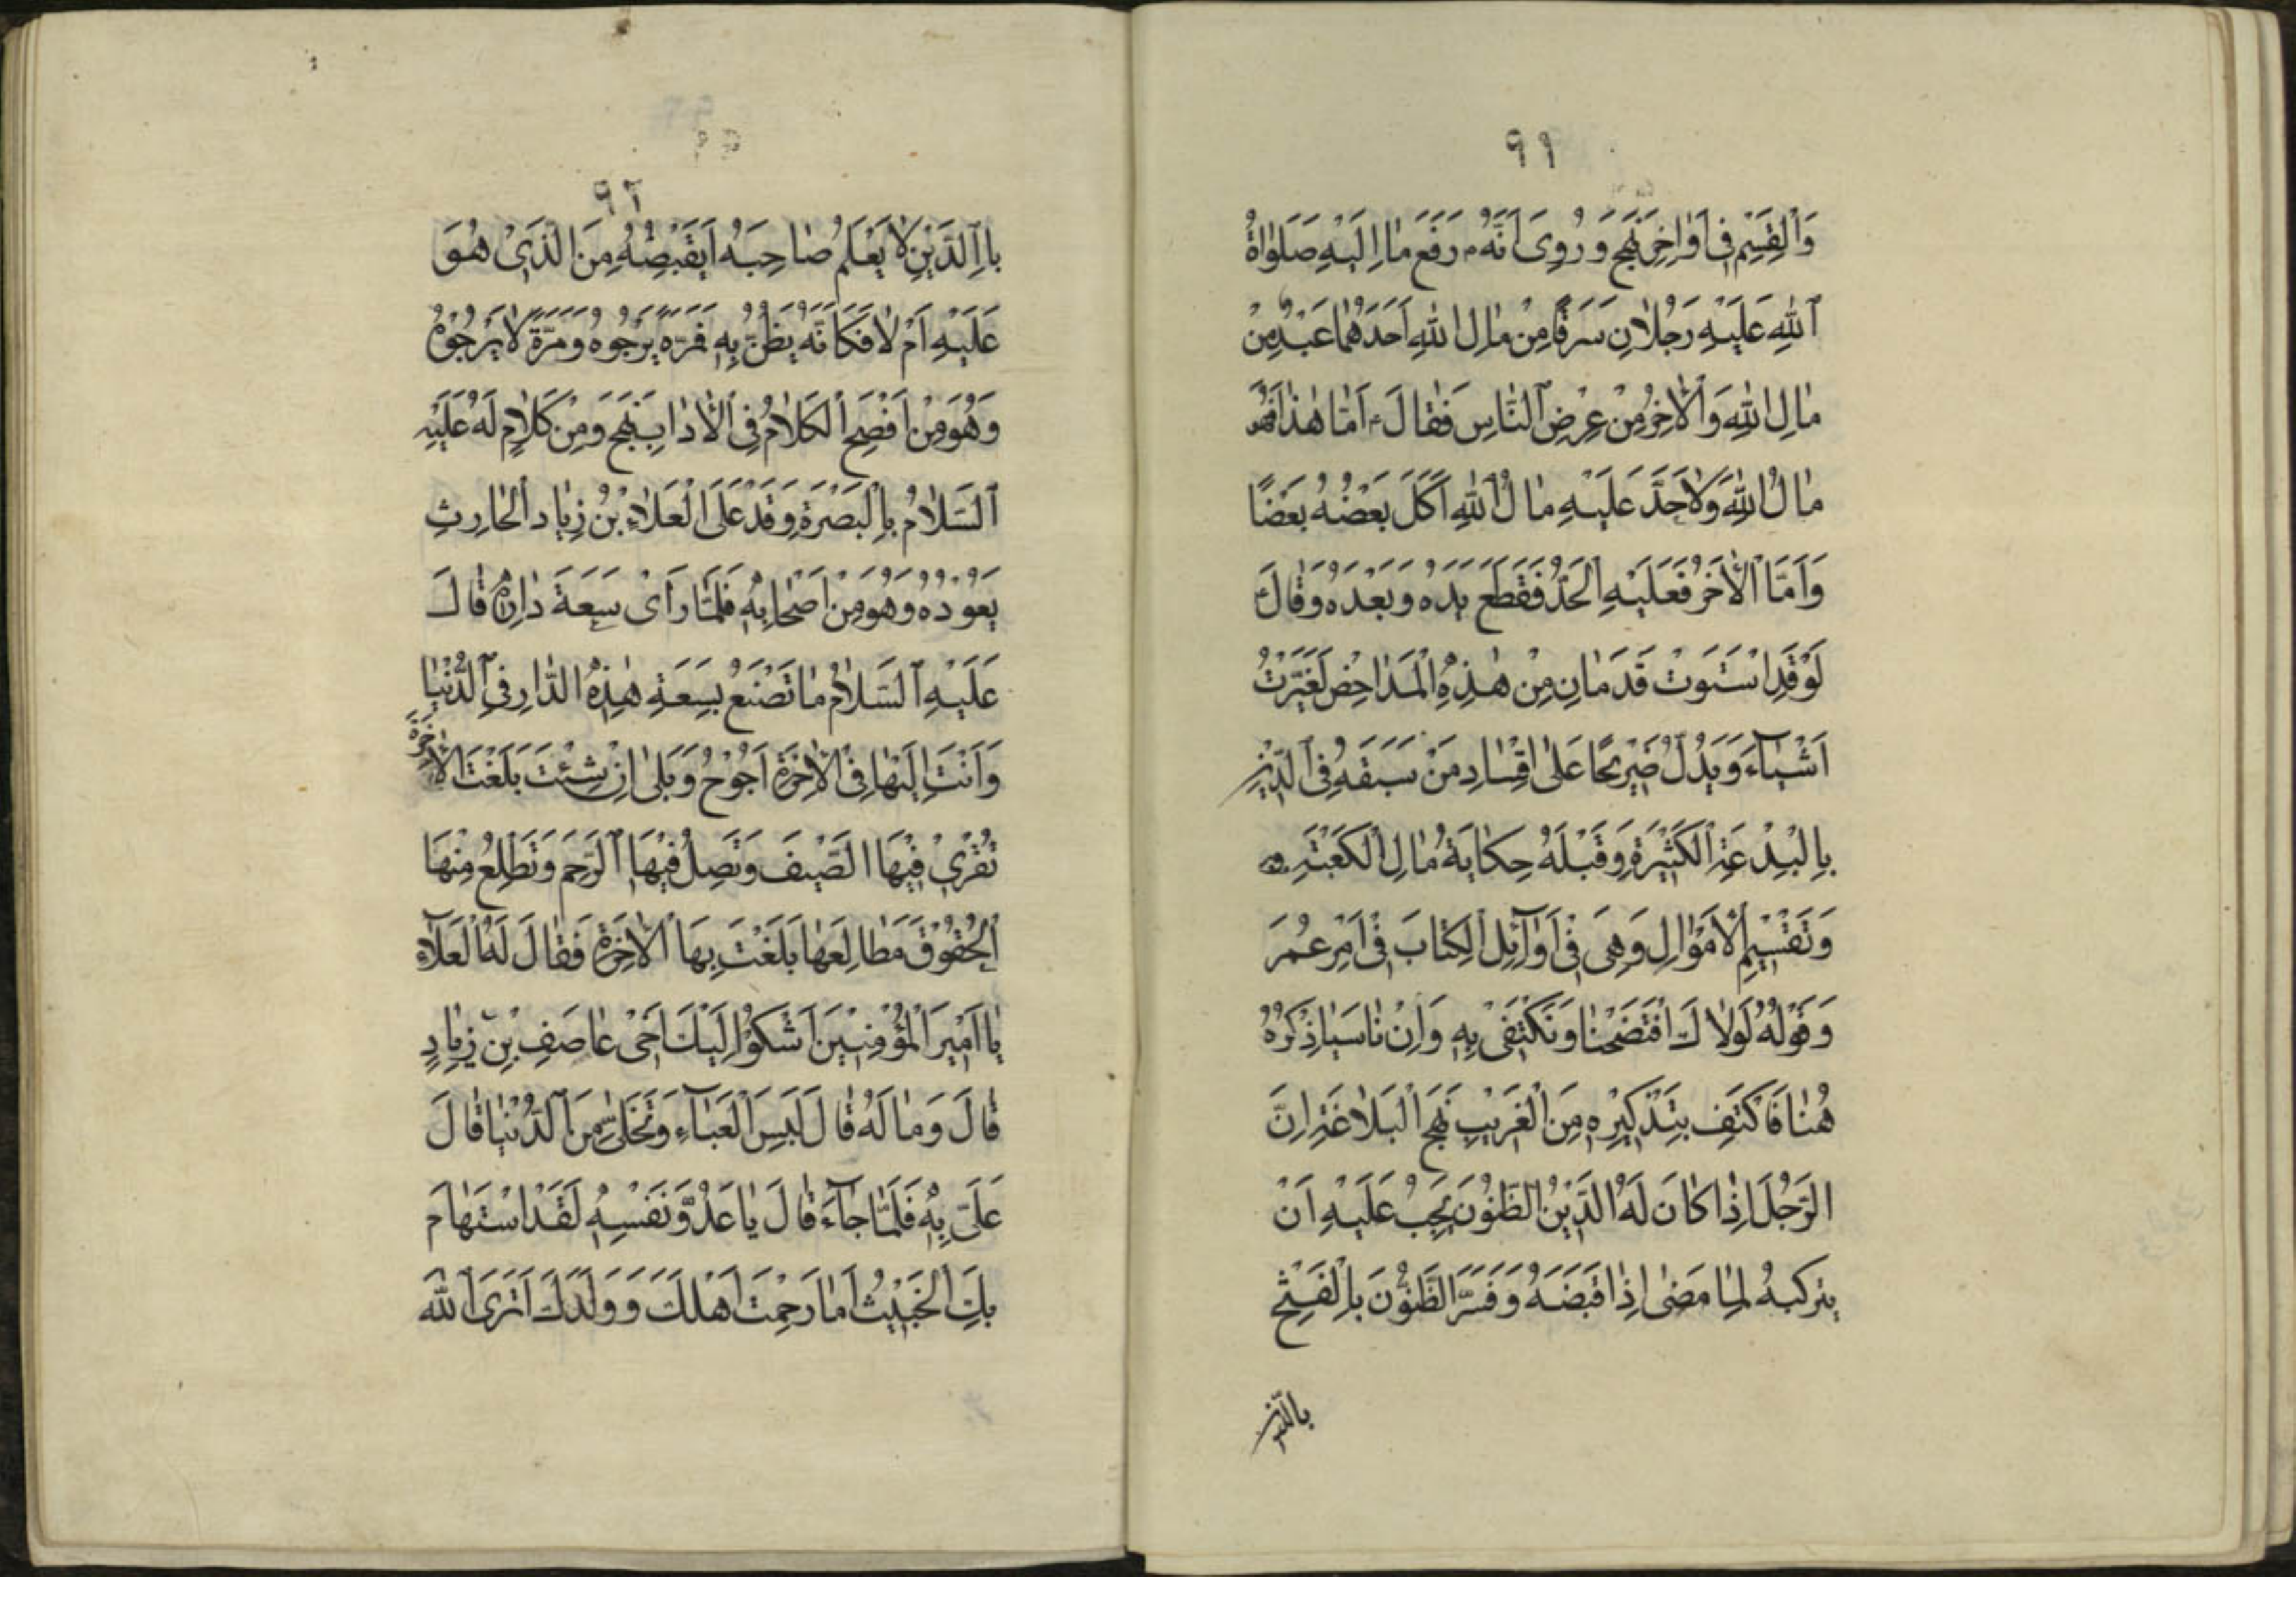 ٩١
وَالْقِسْمِ فِی اَوٰاخِرِ نَهْجِ وَ رُوِیَ اَنَّهُ ۴ رَفَعَ مٰا اِلَیْهِ صَلَوٰاةُ
اَللّٰهِ عَلَیْهِ رَجُلاٰنِ سَرَقٰا مِنْ مٰالِ اللّٰهِ اَحَدَهُمٰا عَبْدٌ مِنْ
مٰالِ اللّٰهِ وَالْاٰخِرُ مِنْ عِرْضِ اَلنّٰاسِ فَقٰالَ ۴ اَمّٰا هٰذٰا فَهُوَ
مٰالُ اللّٰهِ وَلاٰحَدَّ عَلَیْهِ مٰالُ اللّٰهِ اَکَلَ بَعْضُهُ بَعْضًا
وَاَمَّا الْاٰخَرُ فَعَلَیْهِ الْحَدُّ فَقَطَعَ یَدَهُ وَبَعْدَهُ وَقٰالَ ۴
لَوْ قَدِ اسْتَوَتْ قَدَمٰانِ مِنْ هٰذِهِ الْمَدٰاحِضِ لَغَیَّرْتُ
اَشْیٰآءَ وَیَدُلُّ صَرِیْحًا عَلیٰ اِفْسٰادِ مَنْ سَبَقَهُ فِی اَلدِّیْنِ
بِالْبِدْعَةِ الْکَثِیْرَةِ وَقَبْلَهُ حِکٰایَةُ مٰالِ الْکَعْبَةِ
وَتَقْسِیْمِ الْاَمْوٰالِ وَهِیَ فِیْ اَوٰآئِلِ الْکِتٰابَ فِیْ اَمْرِ عُمَرَ
وَقَوْلُهُ لَوْلاٰكَ افْتَضَحْنٰا وَنَکْتَفیٰ بِهِ وَاِنْ نٰاسَبٰا ذِکْرُهُ
هُنٰا فَاکْتَفِ بِتَذْکِیْرِهِ مِنَ الْغَرِیْبِ نَهْجِ الْبَلاٰغَةِ اِنَّ
الرَّجُلَ اِذٰا کٰانَ لَهُ الدَّیْنُ الظَّنُوْنَ یَجِبُ عَلَیْهِ اَنْ
یُزَکِّیَهُ لِمٰا مَضیٰ اِذٰا قَبَضَهُ وَ فَسَّرَ الظَّنُوْنَ بِالْفَتْحِ
بالدّین
٩٢
بِاالدَّیْنِ لاٰ یَعْلَمُ صٰاحِبَهُ اَیَقْبَضُهُ مِنَ الَّذِیْ هُوَ
عَلَیْهِ اَمْ لاٰ فَکَاَنَّهُ یَظُنُّ بِهِ فَمَرَّةً یَرْجُوهُ وَمَرَّةً لاٰیَرْجُوْهُ
وَهُوَ مِنْ اَفْصَحِ الْکَلاٰمُ فِی الْاٰدٰابِ نَهْجِ وَمِنْ کَلاٰمٍ لَهُ عَلَیْهِ
اَلسَّلاٰمُ بِالْبَصْرَةِ وَقَدْ عَلَی الْعَلاٰءِ بْنُ زِیٰادِ اَلْحٰارِثِ
یَعُوْدُهُ وَهُوَ مِنْ اَصْحٰابِهِ فَلَمَّا رَاَیْ سَعَةَ دٰارِهُ قٰالَ
عَلَیْهِ اَلسَّلاٰمُ مٰا تَصْنَعُ بِسَعَةِ هٰذِهِ الدّٰارِ فِی اَلدُّنْیٰا
وَاَنْتَ اِلَیْهٰا فِی الْاٰخِرَةِ اَجُوْحُ وَبَلیٰ اِنْ شِئْتَ بَلَغْتَ الْاٰخِرَةَ
تُقْرِیْ فِیْهَا الضَّیْفَ وَتَصِلُ فِیْهَا اَلرَّحِمَ وَتَطْلِعُ مِنْهَا
اَلْحُقُوْقَ مَطٰالِعَهٰا بَلَغْتَ بِهَا الْاٰخِرَةِ فَقٰالَ لَهُ الْعَلاٰءِ
یٰا اَمِیْرَ الْمُؤْمِنِیْنَ اَشْکُوْ اِلَیْكَ اَخیْ عٰاصَفِ بْنِ زِیٰادٍ
قٰالَ وَمٰا لَهُ قٰالَ لَبِسَ الْعَبٰآءِ وَتَخَلّیٰ مِنَ اَلدُّنْیٰا قٰالَ
عَلَیَّ بِهِ فَلَمّٰا جٰآءَ قٰالَ یٰا عَدُوَّ نَفْسِهِ لَقَدْ اسْتَهٰامَ
بِكَ الْخَبِیْثُ اَمٰا رَحِمْتَ اَهْلَكَ وَ وَلَدَكَ اَتَرَی اَللّٰهَ